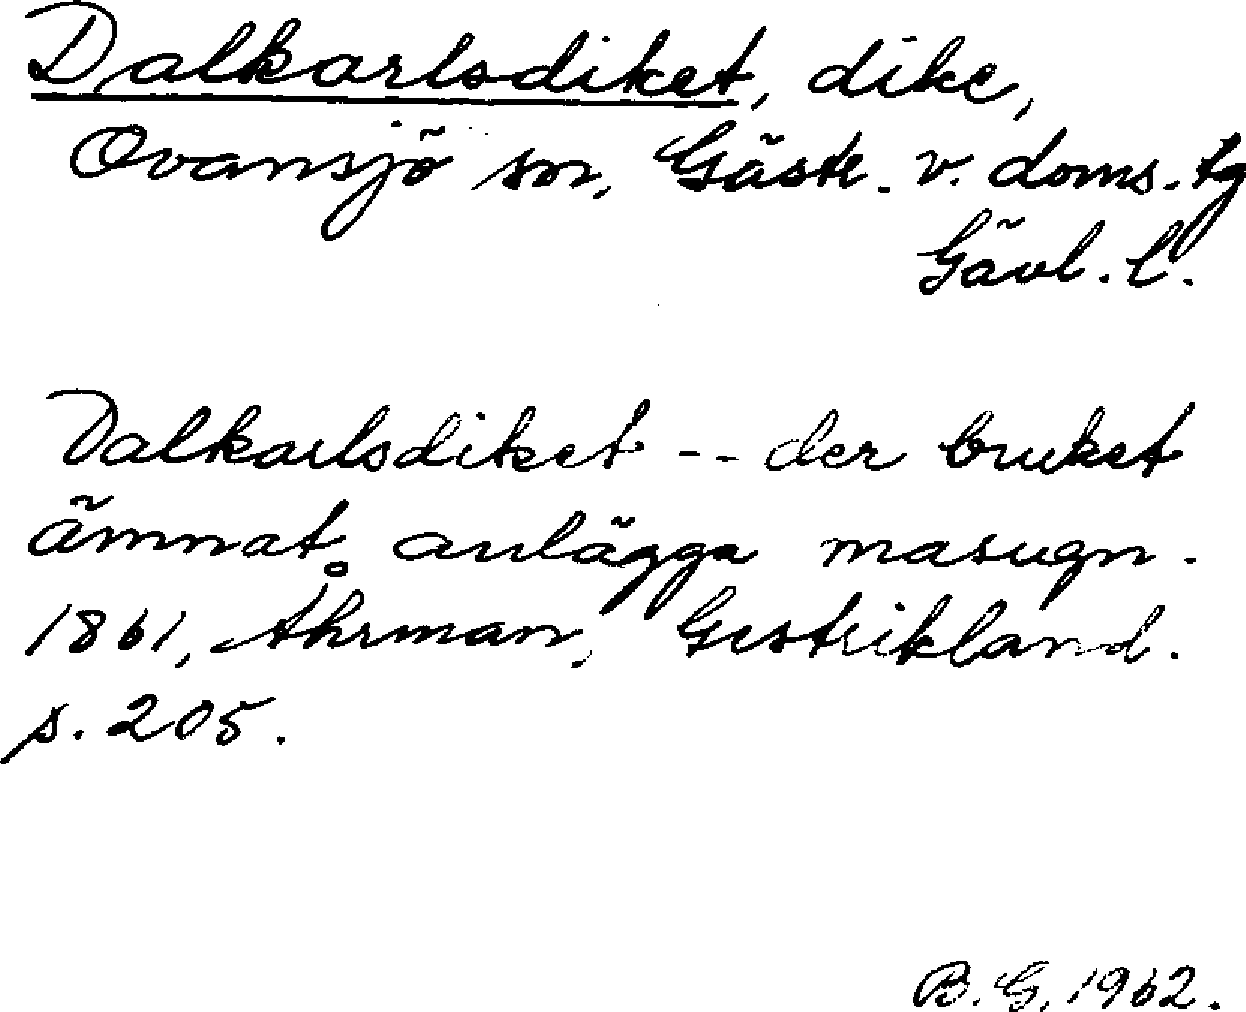 Dalkarlsdiket, dike,
Ovansjö sn, Gästr. v. doms. tg
Gävl. l.
Dalkarlsdiket -- der bruket
ämnat anlägga masugn.
1861, Åhrman, Gestrikland.
s. 205.
B. G. 1962.